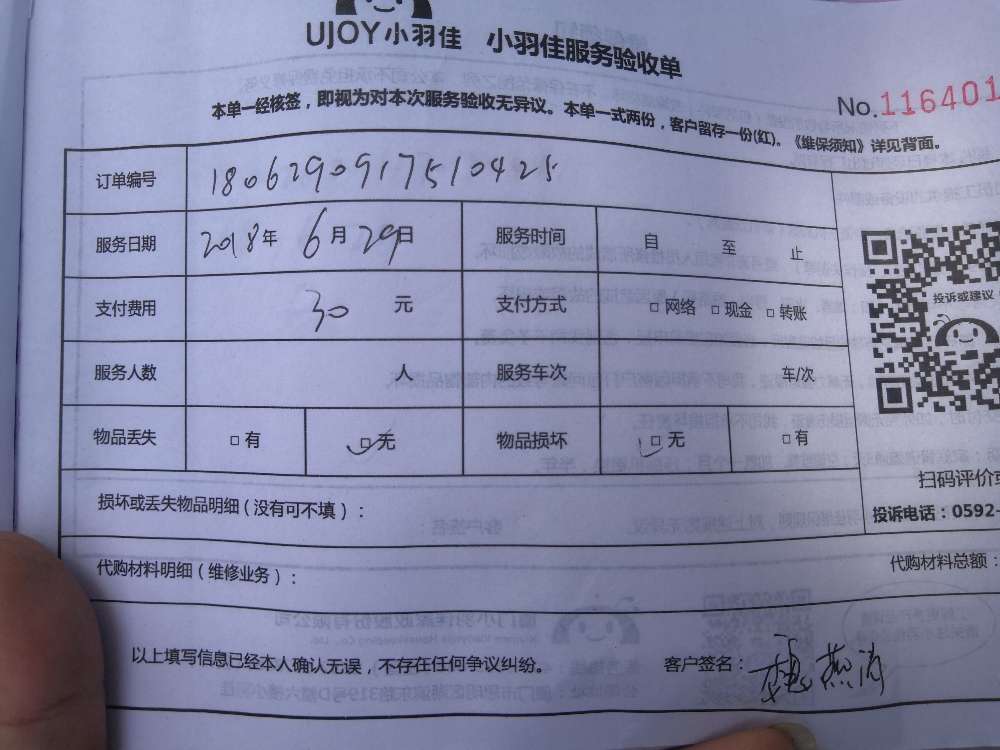 UJOY小羽佳 小羽佳服务验收单
No.116401
本单一经核签，即视为对本次服务验收无异议。本单一式两份，客户留存一份(红)。《维保须知》详见背面。
订单编号 1806290917510425
服务日期 2018年 6月29日 服务时间 自 至 止
支付费用 30 元 支付方式 □网络 □现金 □转账
投诉或建议
服务人数 人 服务车次 车/次
物品丢失 □有 □无 物品损坏 □无 □有
扫码评价或
损坏或丢失物品明细（没有可不填）：
投诉电话：0592-
代购材料明细（维修业务）：
代购材料总额：
以上填写信息已经本人确认无误，不存在任何争议纠纷。 客户签名：